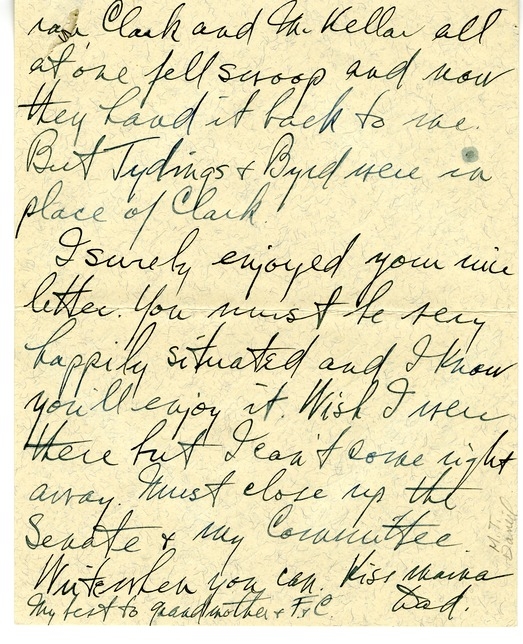 ran Clark and McKellar all
at one fell swoop and now
they hand it back to me.
But Tydings & Byrd were in
place of Clark
I surely enjoyed your nice
letter. You must be very
happily situated and I know
you'll enjoy it. Wish I were
there but I can't come right
away. Must close up the
Senate & my Committee.
Write when you can. Kiss mama
Dad.
My best to grandmother & F & C.
M.T.
Daniel